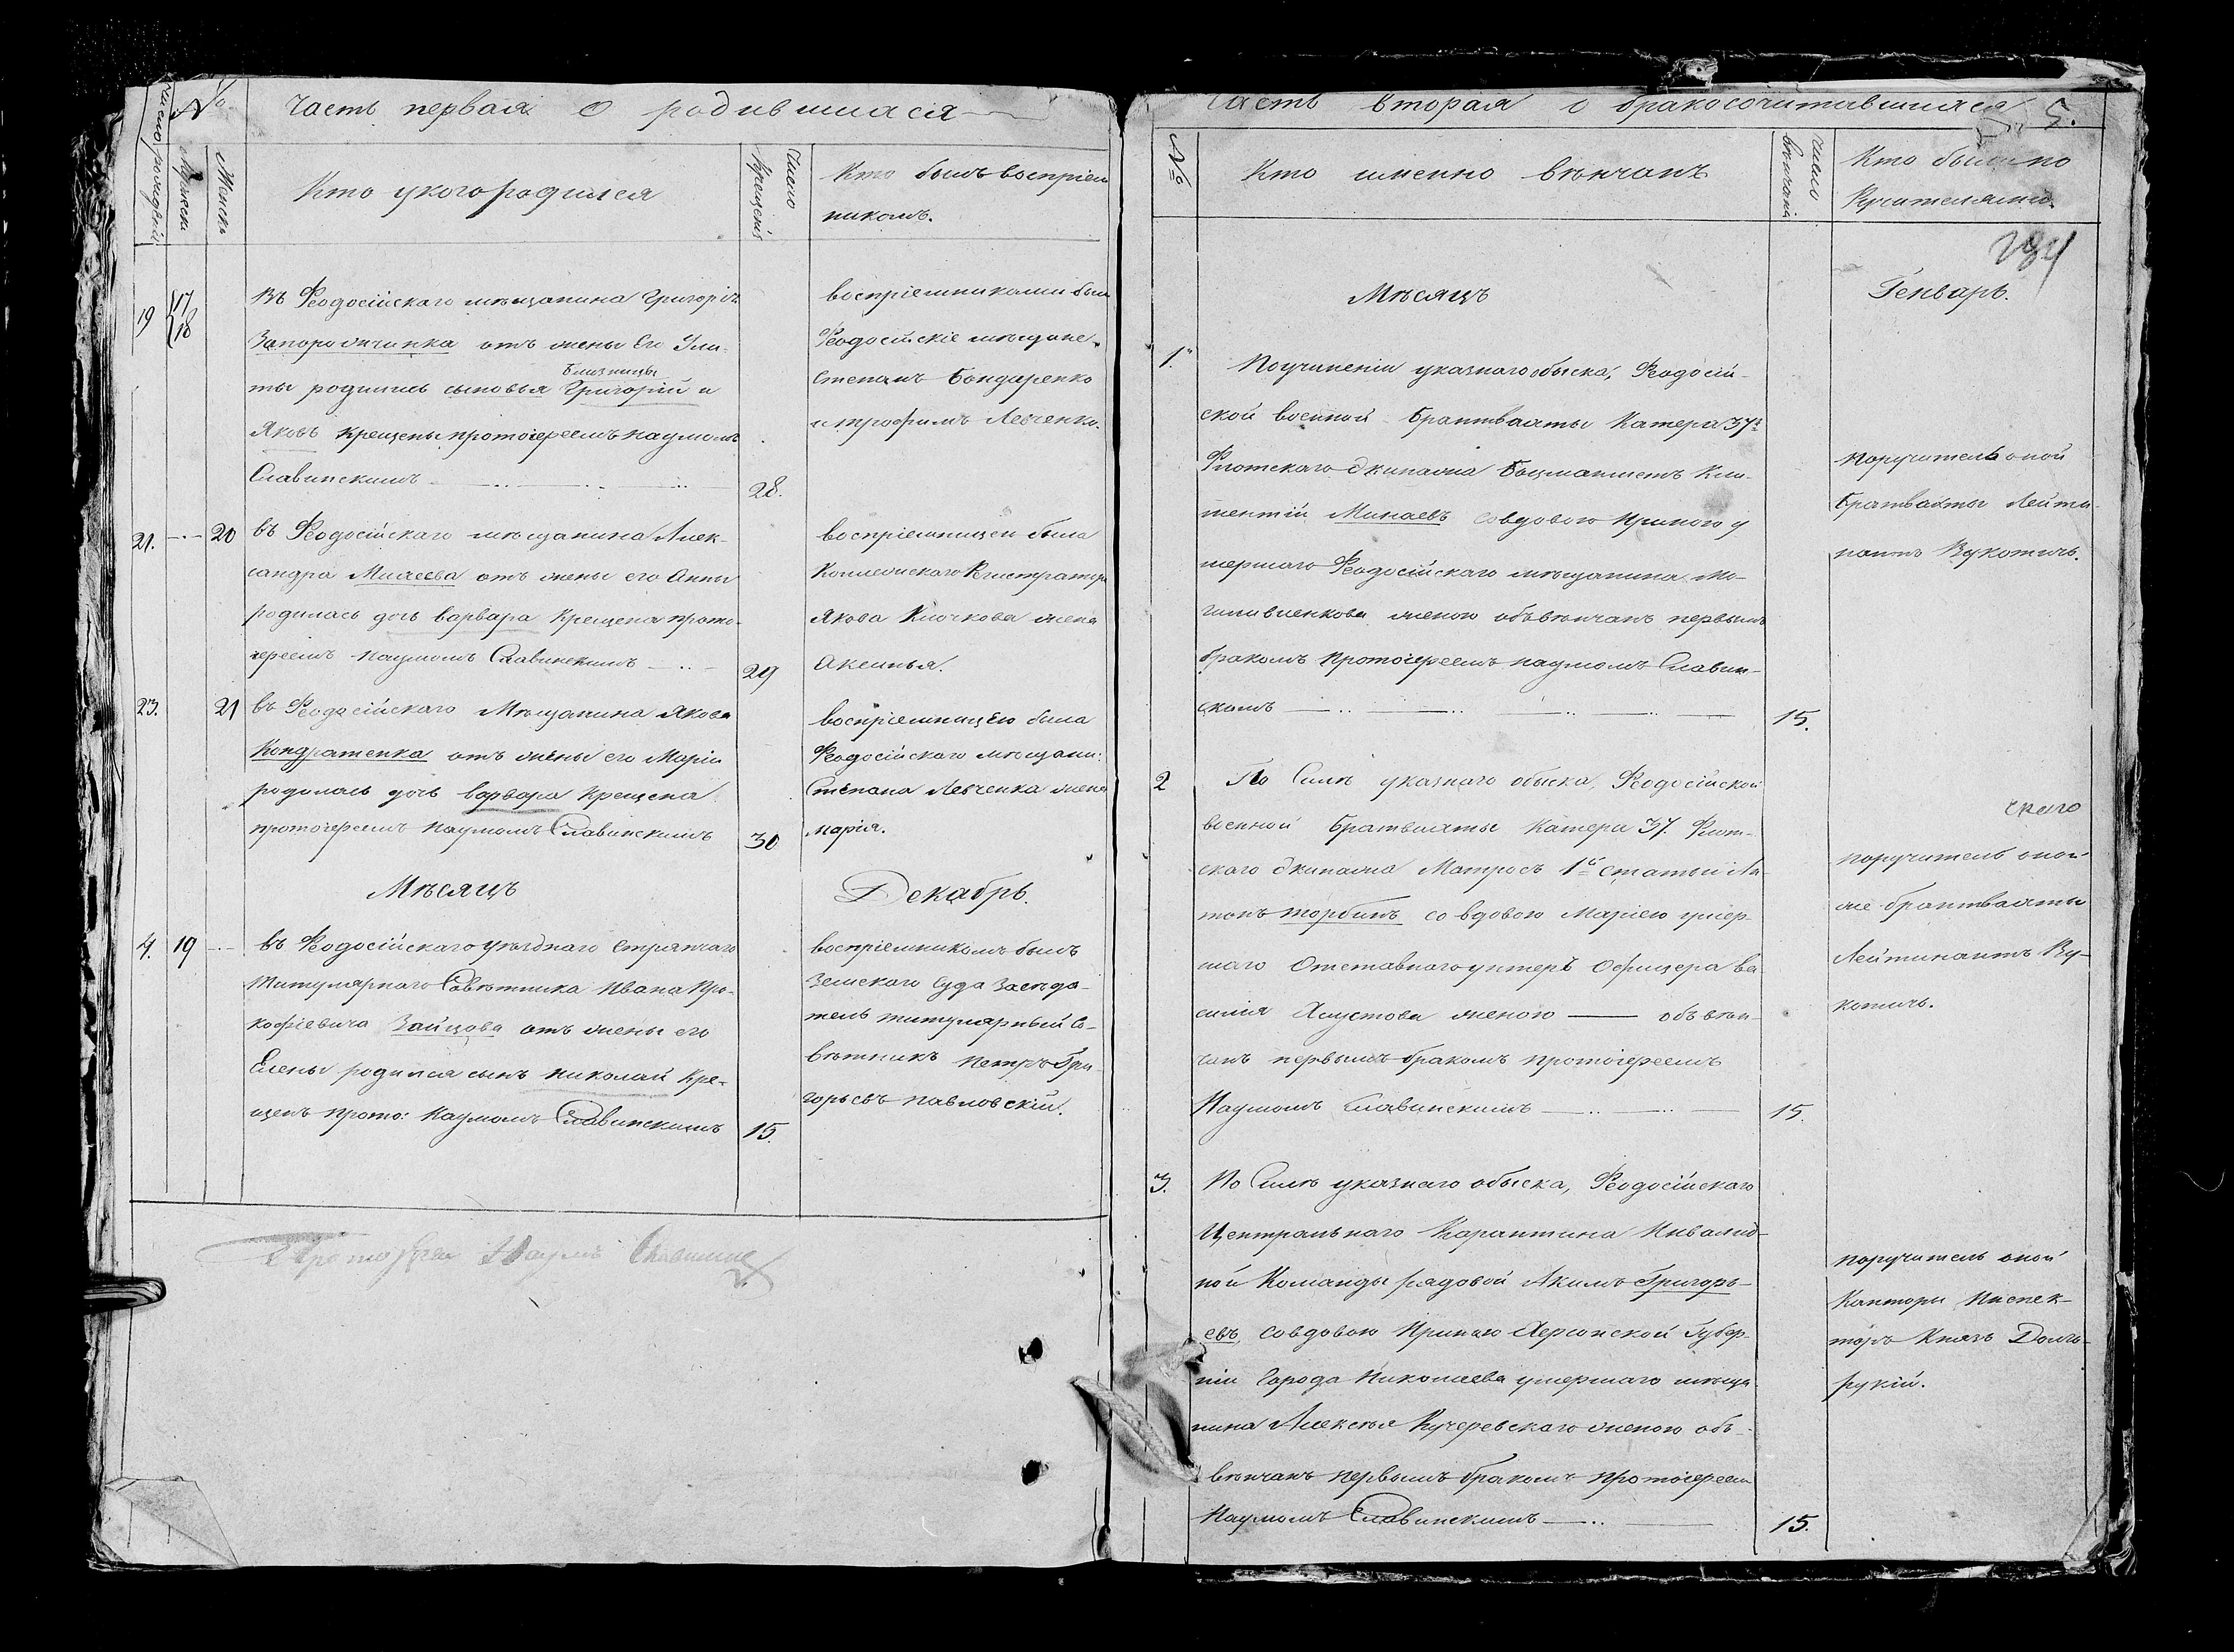 Часть первая о родившихся
Число рождения
№
Мужеска
Женска
Кто укого родился
Число Крещенія
Кто былъ воспріем
никомъ.
19
17
18
Въ Феодосійскаго мещанина Григорія
Запорожченка отъ жены Его Ули-
близницы
ты родились сыновья Григорій и
Яковъ Крещены протоіереемъ наумомъ
Славинскимъ
28.
воспріемниками были
Феодосійскіе мещане
Степанъ Бондаренко
и трофимъ Левченко.
21.
20
въ Феодосійскаго мещанина Алек-
сандра отъ жены его Анны
родилась дочь варвара Крещена прото-
іереемъ наумомъ Славинскимъ
29
воспріемницею была
Коллежскаго Регистратора
Якова Клочкова жена
Аксинья.
23.
21
въ Феодосійскаго Мѣщанина Якова
Кондратенка отъ жены его Маріи
родилась дочь варвара Крещена
протоіереемъ наумомъ Славинскимъ
30
воспріемницею была
Феодосійскаго мѣщани:
Степана Левченка жена
марія.
Мѣсяцъ
Декабрь.
4.
19
въ Феодосійскаго уѣзднаго Стряпчаго
Титулярнаго Совѣтника Ивана Про-
кофіевича Зайцова отъ жены его
Елены родился сынъ николай Кре-
щенъ прото: Наумомъ Славинскимъ
15.
воспріемникомъ былъ
Земскаго Суда Заседа-
тель титулярный Со-
вѣтникъ петръ Гри-
горьевъ павловскій.
Протоіерей Наумъ Славинскій
Часть вторая о бракосочитавшихся
5.
№
Кто именно вѣнчанъ
Число вѣнчанія
Кто были по
ручителями.
Мѣсяцъ
Генварь.
1.
Поучиненіи указнаго обыска, Феодосій-
ской военной брантвахты Катера 37го
Флотскаго Экипажа Боцманматъ Кли-
ментій Минаевъ совдовою Ириною у
мершаго Феодосійскаго мѣщанина Мо-
гилевленкова женою объвѣнчанъ первымъ
бракомъ протоіереемъ наумомъ Славин-
скимъ
15.
поручитель оной
брантвахты Лейте-
нантъ Вукотичь.
2
По Силѣ указнаго обыска, Феодосійской
военной брантвахты Катера 37. Флот-
скаго Экипажа Матросъ 1й статьи Ан-
тонъ торбинъ со вдовою Маріею умер-
шаго Отставнаго унтеръ Офицера ва-
силія Хаустова женою объвѣн-
чанъ первымъ бракомъ протоіереемъ
Наумомъ Славинскимъ
15.
поручитель оной
же брантвахты
Лейтинантъ Ву-
котичь.
3.
По Силѣ указнаго обыска, Феодосійскаго
Центральнаго Карантина Инвалид-
ной Команды рядовой Акимъ Григорь-
евъ, совдовою Ириною Херсонской Губер-
ніи Города Николаева умершаго мѣща-
нина Алексея Кучеревскаго женою объ-
вѣнчанъ первымъ бракомъ протоіереем
Наумомъ Славинскимъ
15.
поручитель оной
Канторы Инспек-
торъ Князь Долго-
рукій.